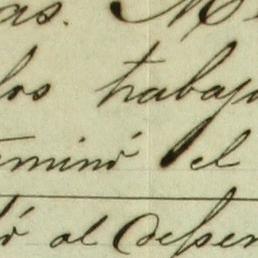 as. M
los trabaj
terminó el
ó al desem